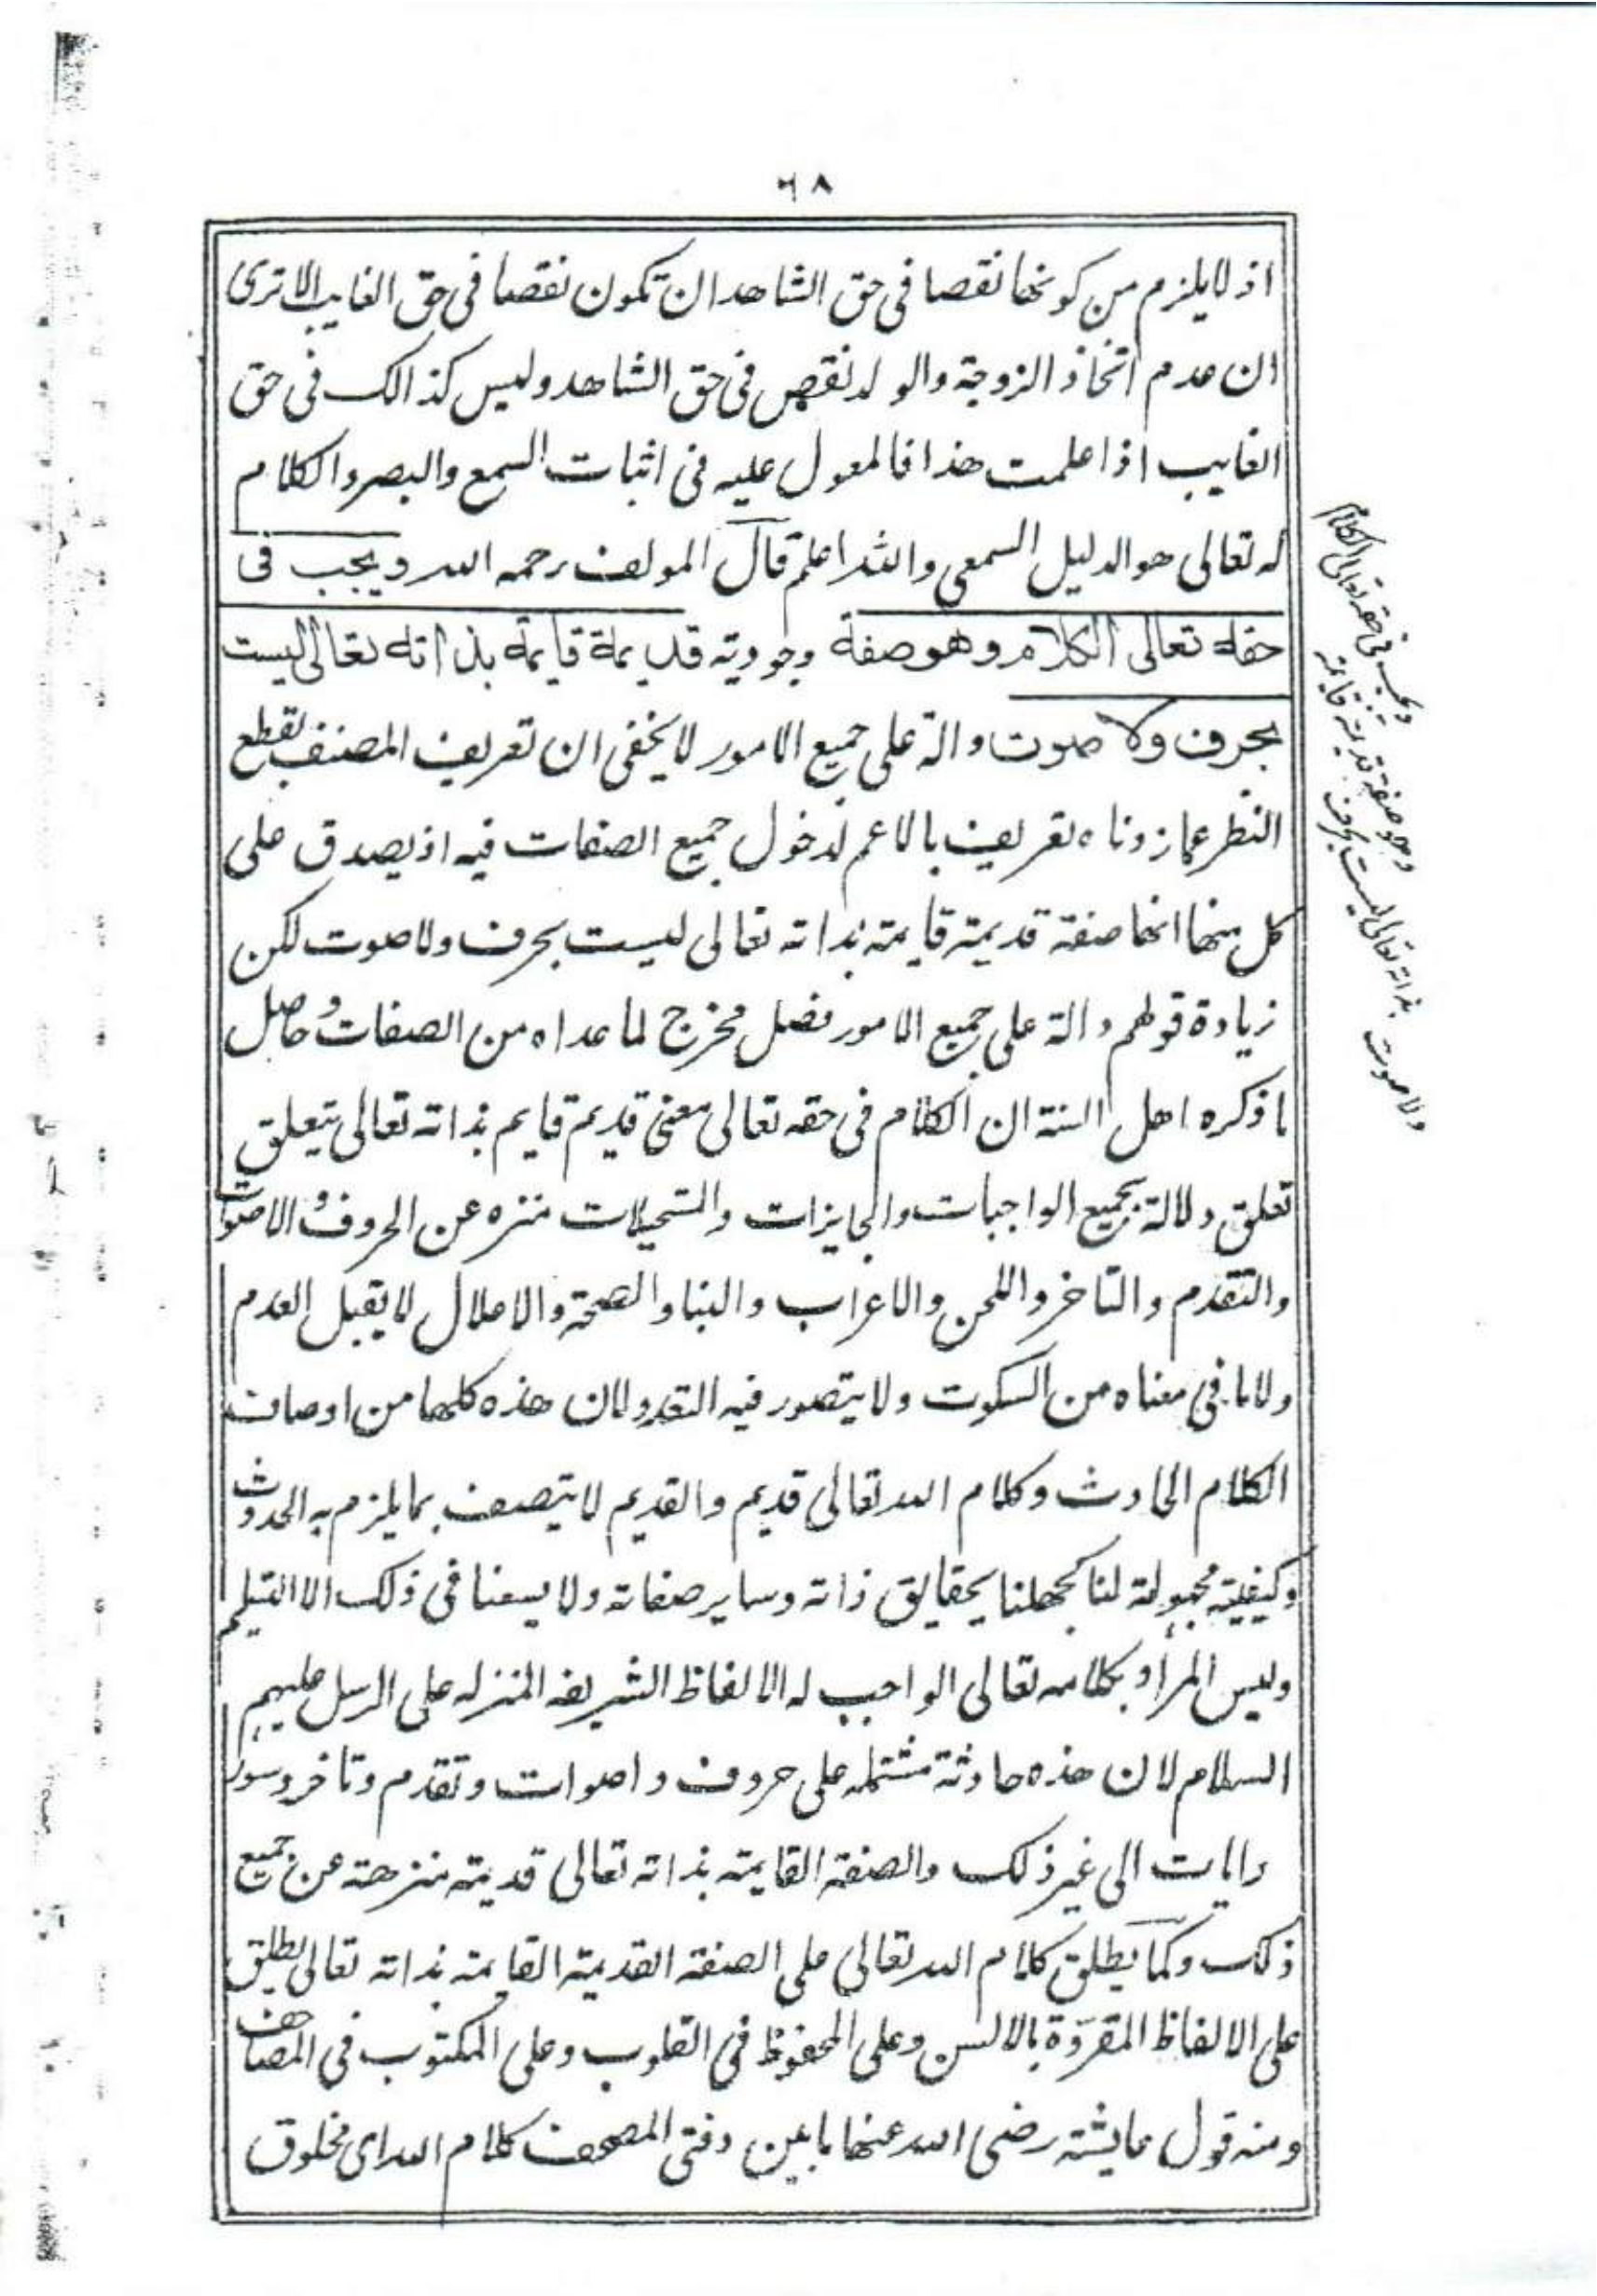 ٦٨
اذ لايلزم من كونها نقصا فى حق الشاهد ان تكون نقصا فى حق الغايب الاترى
ان عدم اتخاذ الزوجة والو لد نقص فى حق الشاهد وليس كذالك فى حق
الغايب اذا علمت هذا فالمعول عليه فى اثبات السمع والبصر والكلام
له تعالى هو الدليل السمعى والله اعلم قال المولف رحمه الله ويجب فى
حقه تعالى الكلام وهو صفة وجودية قديمة قايمة بذاته تعالى ليست
بحرف ولا صوت دالة على جميع الامور لا يخفى ان تعريف المصنف بقطع
النظر عما زدناه تعريف بالاعم لدخول جميع الصفات فيه اذ يصدق على
كل منها انها صفة قديمة قايمة بذاته تعالى ليست بحرف ولا صوت لكن
زيادة قولهم دالة على جميع الامور فصل مخرج لما عداه من الصفات وحاصل
ما ذكره اهل السنة ان الكلام فى حقه تعالى معنى قديم قايم بذاته تعالى يتعلق
تعلق دلالة بجميع الواجبات والجايزات والمستحيلات منزه عن الحروف والاصوات
والتقدم والتاخر واللحن والاعراب والبنا والصحة والاعلال لا يقبل العدم
ولا ما فى معناه من السكوت ولا يتصور فيه التعدد لان هذه كلها من اوصاف
الكلام الحادث وكلام الله تعالى قديم والقديم لا يتصف بما يلزم به الحدوث
وكيفية مجهولة لنا كجهلنا بحقايق ذاته وساير صفاته ولا يسعنا فى ذلك الا التسليم
وليس المراد بكلامه تعالى الواجب له الالفاظ الشريفه المنزله على الرسل عليهم
السلام لان هذه حادثة مشتمله على حروف واصوات وتقدم وتاخر وسور
وايات الى غير ذلك والصفة القايمة بذاته تعالى قديمة منزهة عن جميع
ذلك وكما يطلق كلام الله تعالى على الصفة القديمة القايمة بذاته تعالى يطلق
على الالفاظ المقروة بالالسن وعلى المحفوظ فى القلوب وعلى المكتوب فى المصاحف
ومنه قول عايشة رضى الله عنها ما بين دفتى المصحف كلام الله اى مخلوق
ويجب فى حقه تعالى الكلام
وهو صفة قديمة قايمة
بذاته تعالى ليست بحرف
ولا صوت